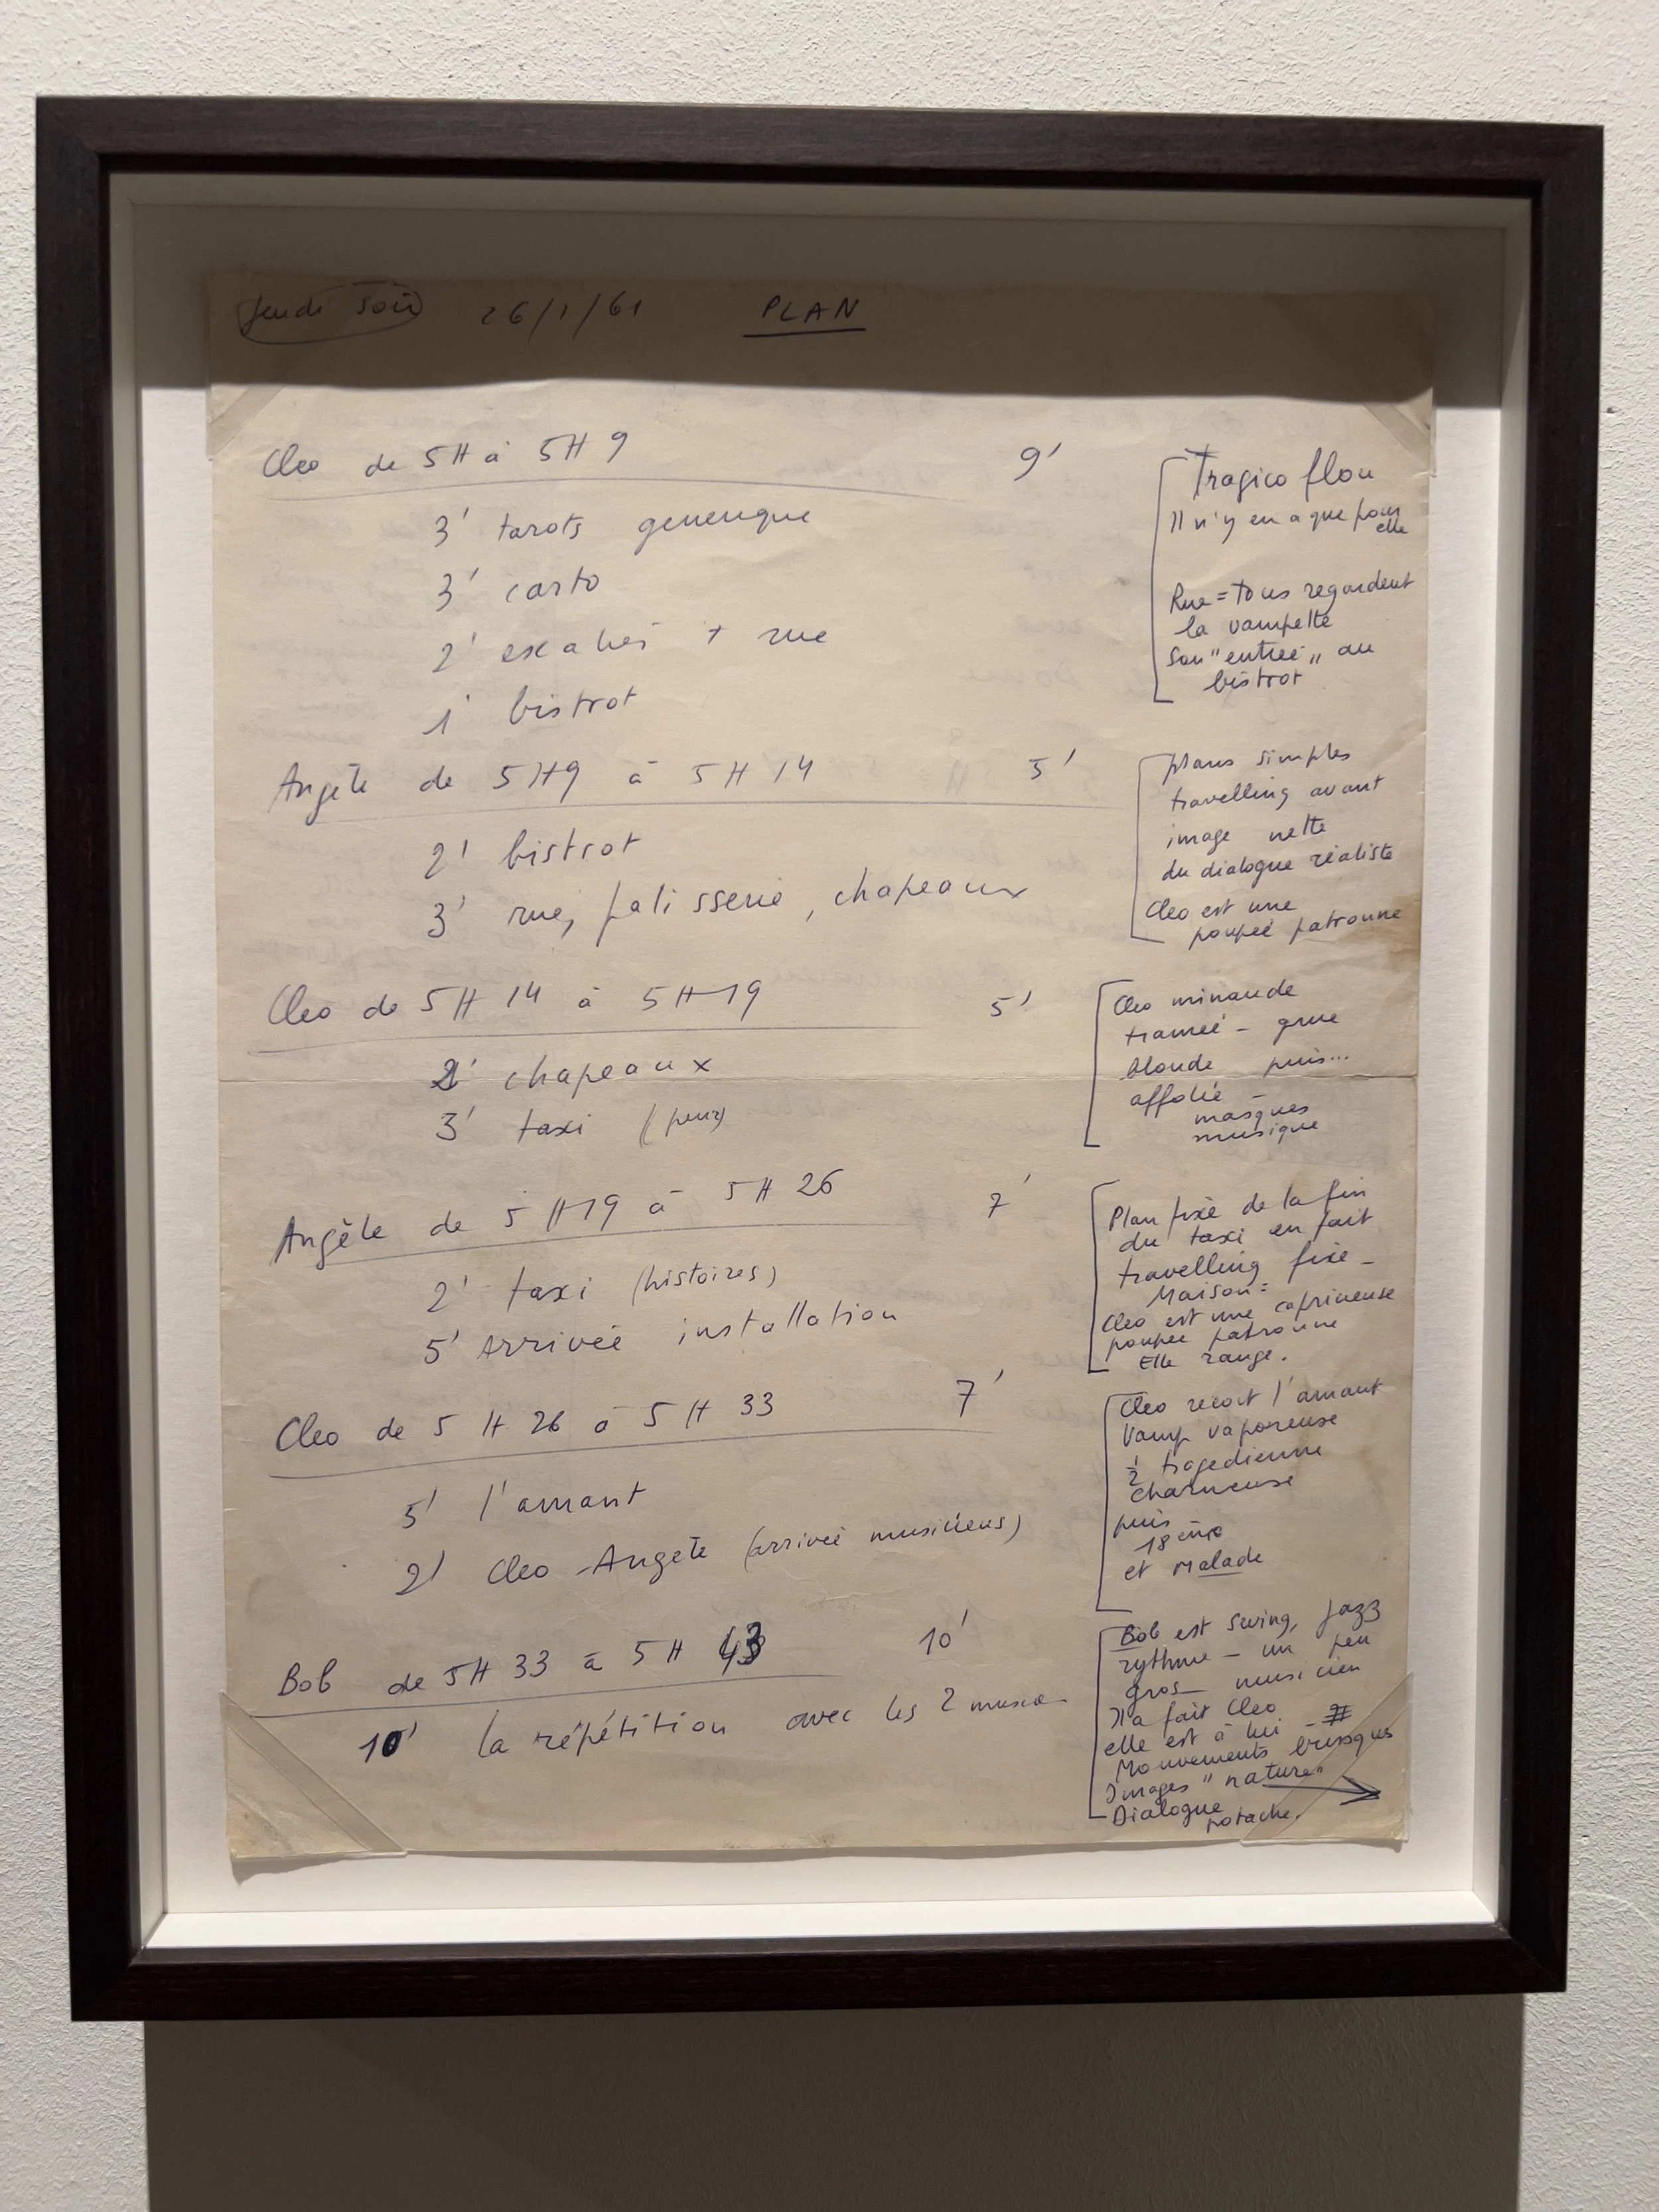 Jeudi soir 26/1/61 PLAN
Cleo de 5H à 5H 9 9'
3' tarots generique
3' carto
2' escalier + rue
1' bistrot
Tragico flou
Il n'y en a que pour
elle
Rue = tous regardent
la vampette
Son "entrée" au
bistrot
Angèle de 5H9 à 5H 14 5'
2' bistrot
3' rue, patisserie, chapeaux
plans simples
travelling avant
image nette
du dialogue réaliste
Cleo est une
poupée patronne
Cleo de 5H 14 à 5H 19 5'
2' chapeaux
3' taxi (peur)
Cleo minaude
tramée - grue
blonde puis...
affolée -
masques
musique
Angèle de 5H19 à 5H 26 7'
2' taxi (histoires)
5' Arrivée installation
Plan fixe de la fin
du taxi en fait
travelling fixe -
Maison =
Cleo est une capricieuse
poupée patronne
Elle range.
Cleo de 5 H 26 à 5 H 33 7'
5' l'amant
2' Cleo - Angèle (arrivée musiciens)
Cleo recoit l'amant
Vamp vaporeuse
1/2 tragedienne
charmeuse
puis
18ème
et Malade
Bob de 5H 33 à 5 H 43 10'
10' la répétition avec les 2
Bob est swing, jazz
rythme - un peu
gros musicien
Il a fait Cleo
elle est à lui - #
Mouvements brusques
Images "nature"
Dialogue
potache.